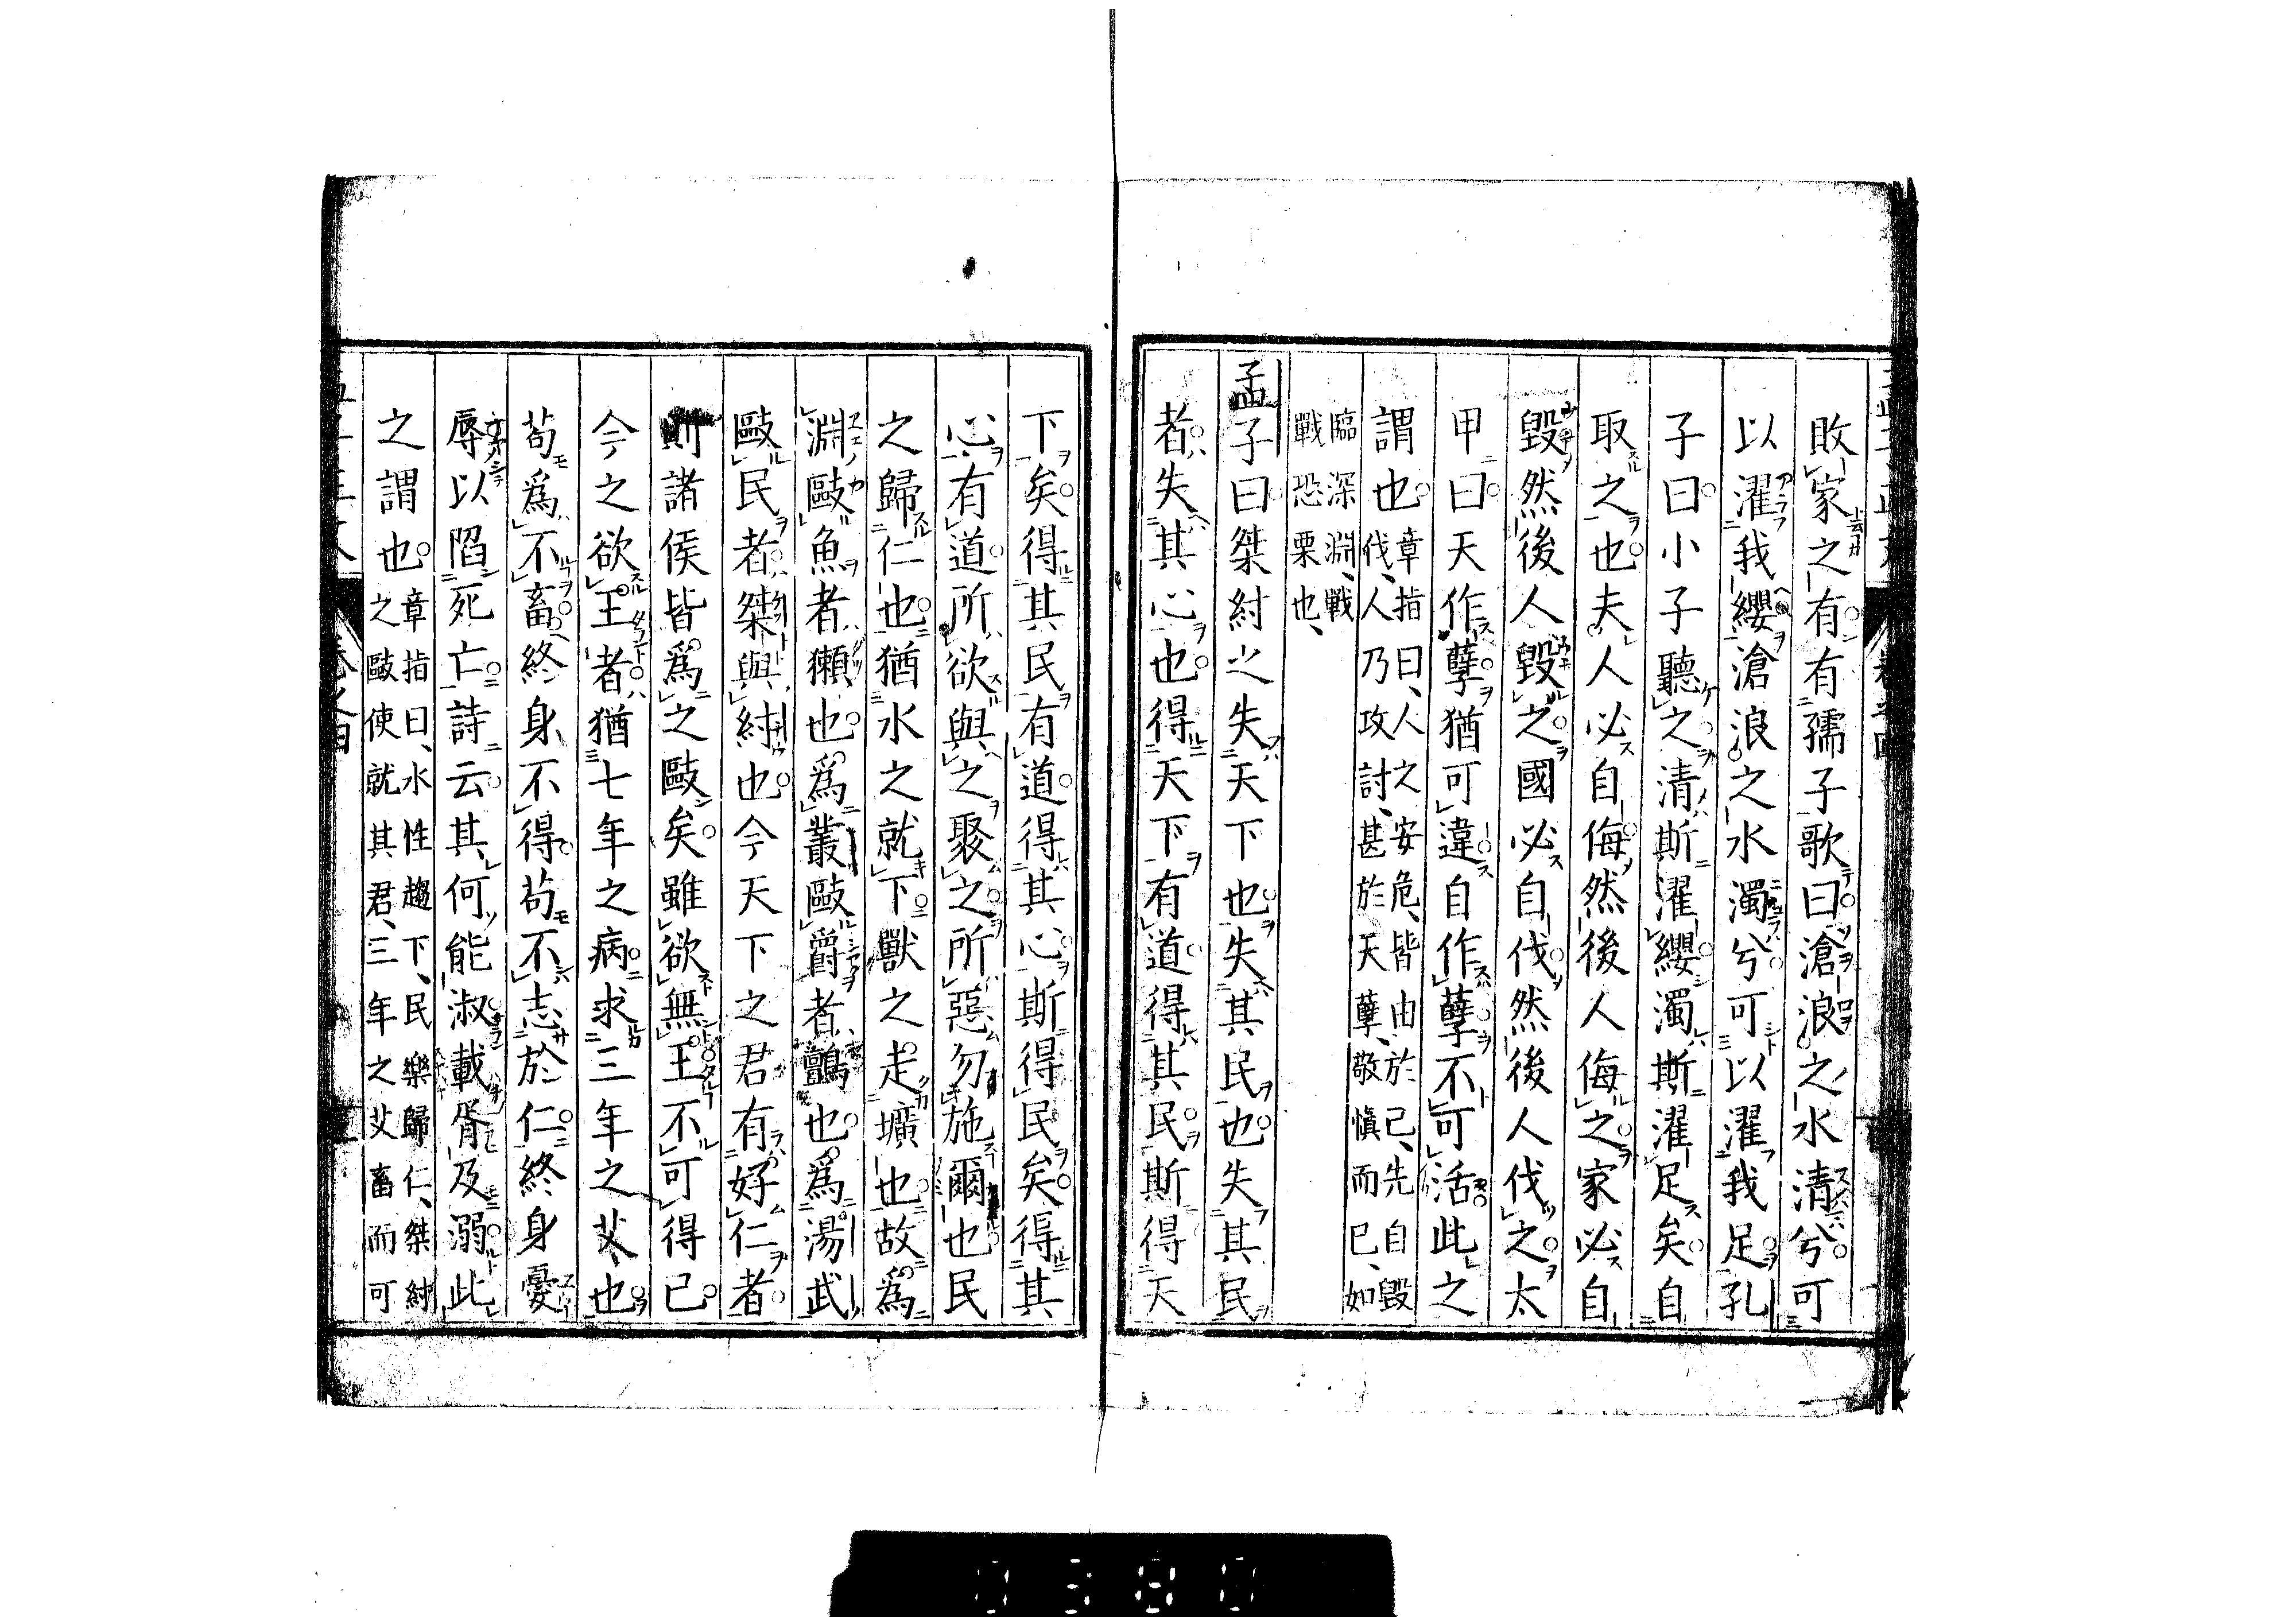 敗家之有有孺子歌曰滄浪之水清兮可
以濯我纓滄浪之水濁兮可以濯我足孔
子曰小子聽之清斯濯纓濁斯濯足矣自
取之也夫人必自侮然後人侮之家必自
毀然後人毀之國必自伐然後人伐之太
甲曰天作孽猶可違自作孽不可活此之
謂也章指曰、人之安危、皆由於己、先自毀
伐、人乃攻討、甚於天孽、敬慎而已、如
臨深淵、戰
戰恐栗也、
孟子曰桀紂之失天下也失其民也失其民
者失其心也得天下有道得其民斯得天
下矣得其民有道得其心斯得民矣得其
心有道所欲與之聚之所惡勿施爾也民
之歸仁也猶水之就下獸之走壙也故為
淵敺魚者獺也為叢敺爵者鸇也為湯武
敺民者桀與紂也今天下之君有好仁者
則諸侯皆為之敺矣雖欲無王不可得已
今之欲王者猶七年之病求三年之艾也
苟為不畜終身不得苟不志於仁終身憂
辱以陷死亡詩云其何能淑載胥及溺此
之謂也章指曰、水性趨下、民樂歸仁、桀紂
之敺使就其君、三年之艾畜而可